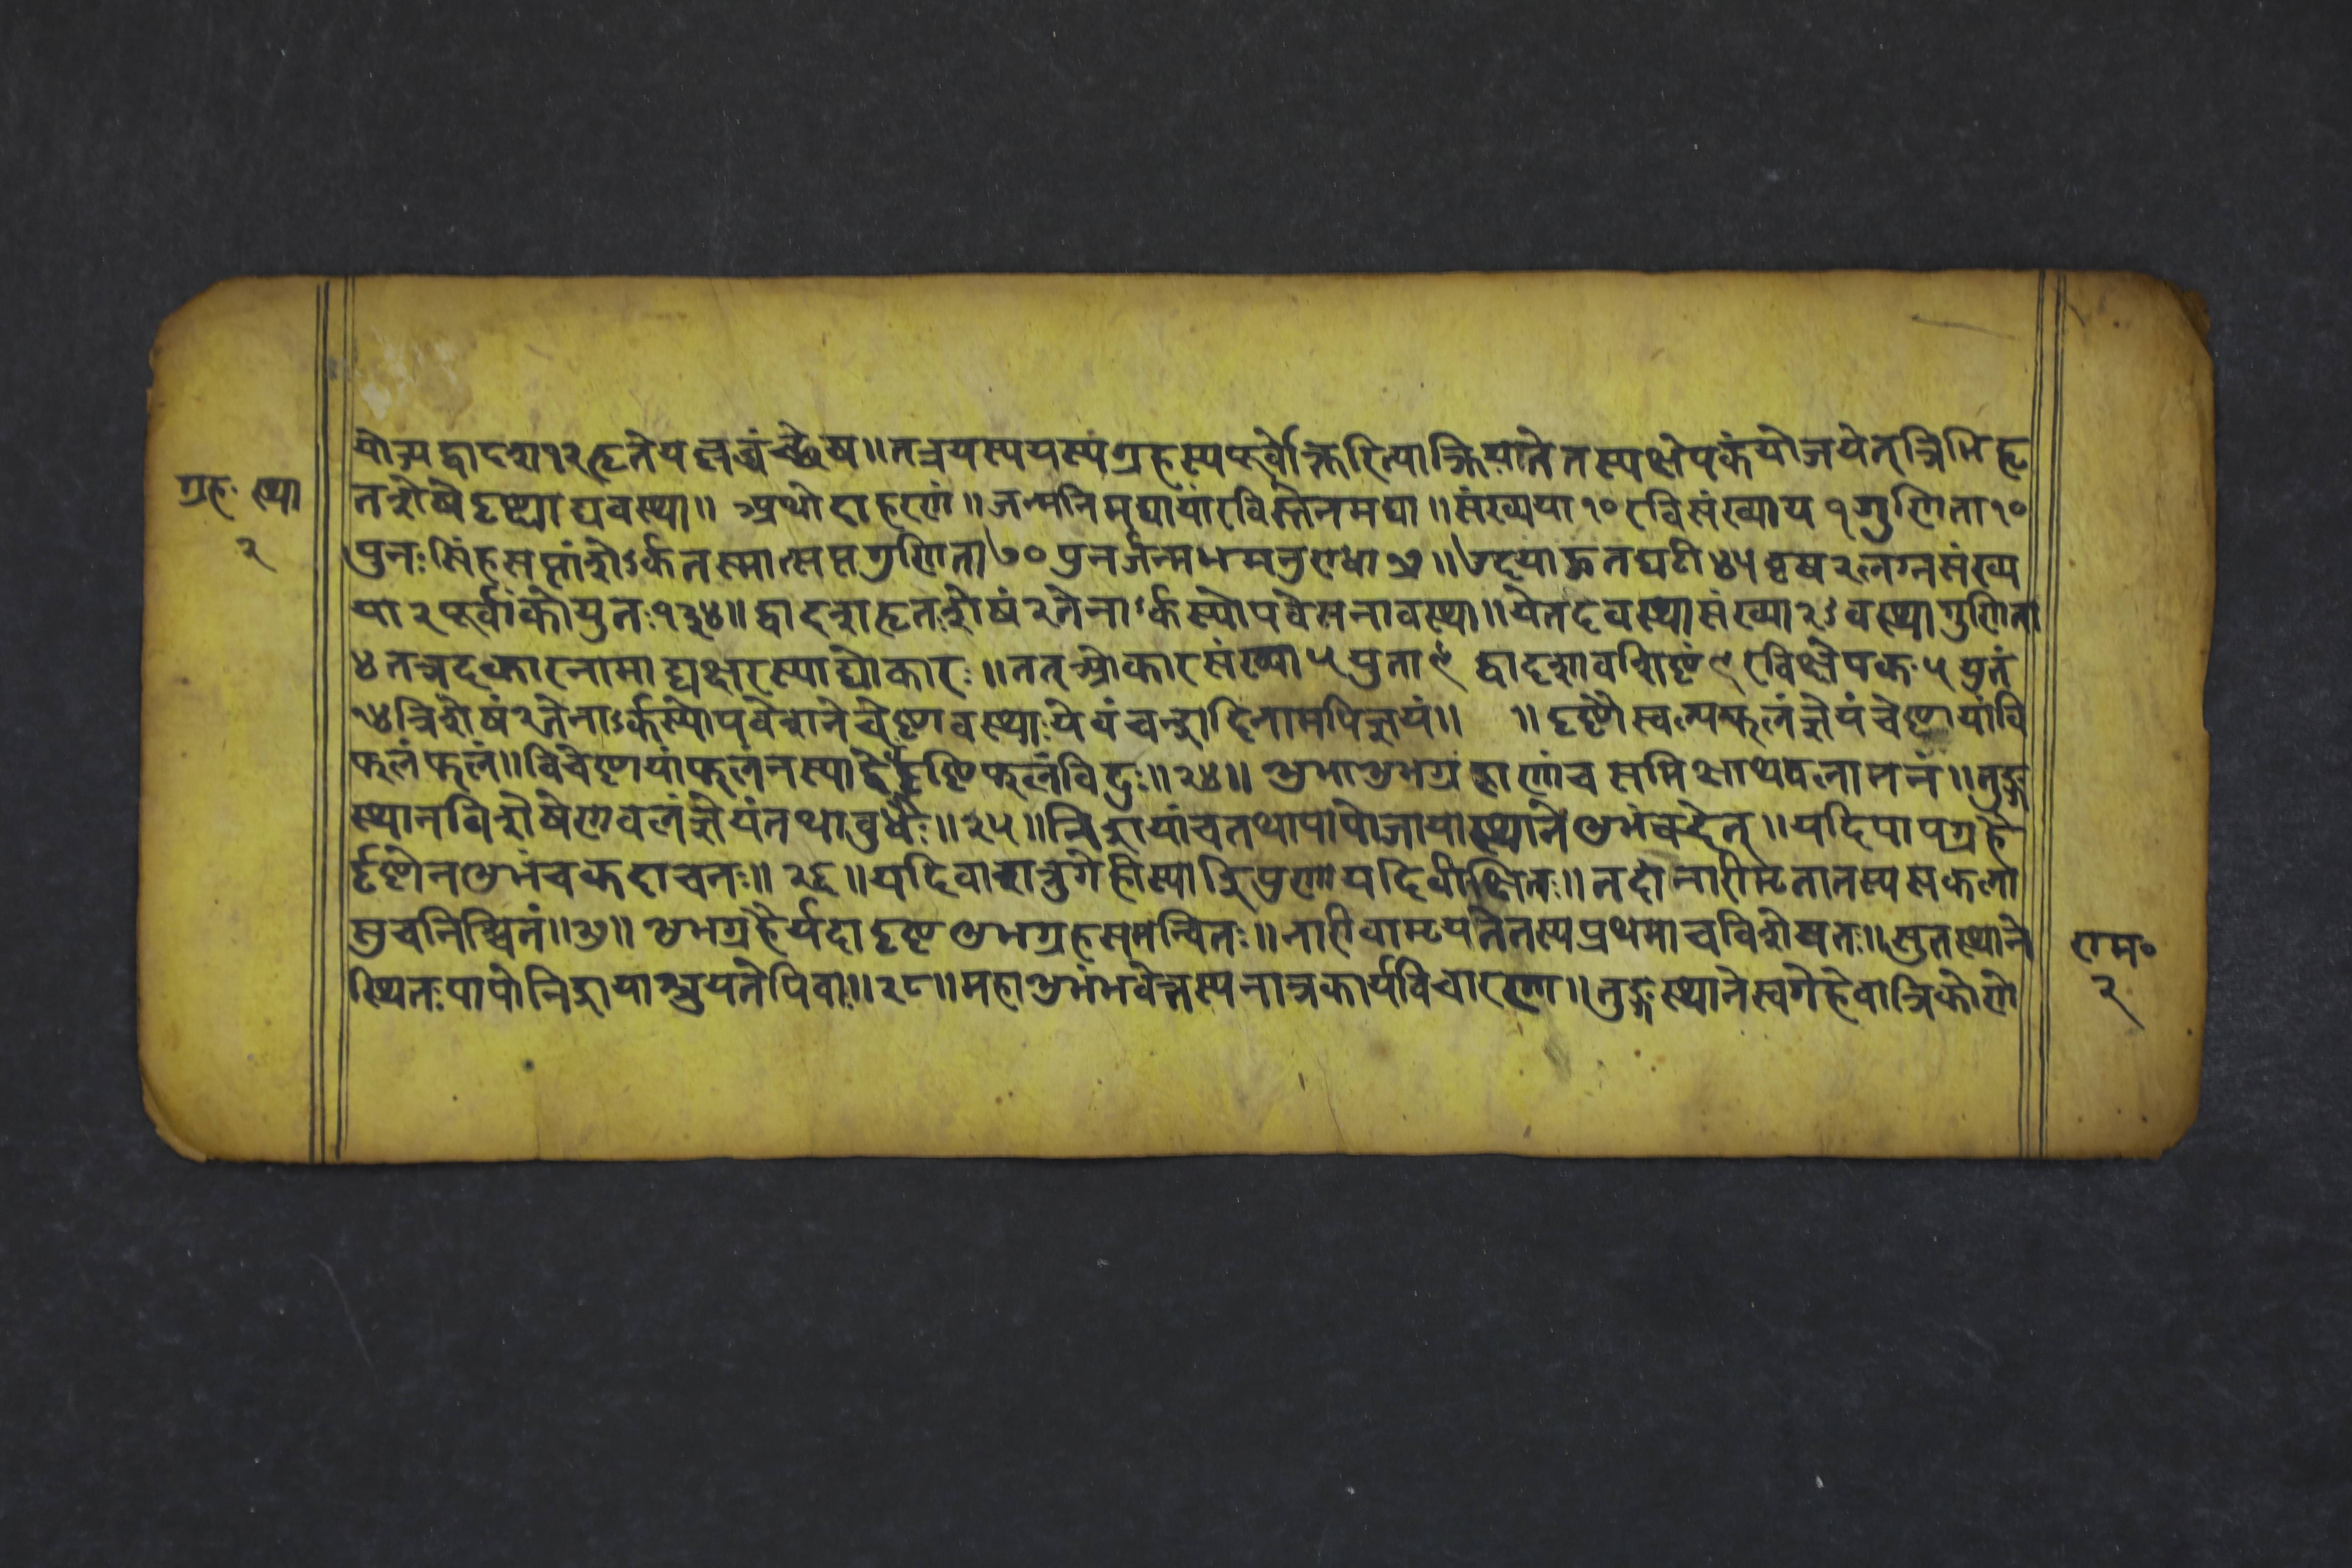 योज्यद्वादश१२हृतेयल्लब्धंच्छेष॥तत्रयस्पयस्पंग्रहस्यपूर्वोक्तरित्याक्रियातेतस्पक्षेपकंयोजयेत्त्रिभिहृ
ग्रह. स्था
२
तशेषेदृष्ट्याद्यवस्था॥ अथोदाहरणं॥जन्मनिमघायांरविस्तेनमघा॥संख्यया१०रविसंख्याय१गुणिता१०
पुनःसिंहसप्तांशेऽर्कतस्मात्सप्तगुणिता७०पुनर्जन्मभमनुराधा१७॥उदयाद्गतघटी४५वृषरलग्नसंख्य
या२पूर्वांकोयुतः१३४॥द्वादशहृतःशेषं२तेनाऽर्कस्योपवेसनावस्था॥येतदवस्थासंख्या२ऽवस्थागुणिता
४तत्रदकारनामाद्यक्षरस्याद्योकारः॥ततओकारसंख्या५युता९ द्वादशावशिष्टं९रविक्षेपकः५युतं
१४त्रिशेषं२तेनाऽर्कस्योपवेशनेचेष्टावस्थाःयेवंचन्द्रादिनामपिज्ञयं॥ ॥दृष्टौस्वल्पफलंज्ञेयंचेष्टायांवि
फलंफलं॥विचेष्टायांफलंनस्याद्देर्दृष्टिफलंविदुः॥२४॥शुभाशुभग्रहाणांचसमिक्षाथबलामनं॥तुङ्ग
स्थानविशेषेणवलंज्ञेयंतथावुधैः॥२५॥निद्रायांचतथापापोजायास्थानेशुभंवदेत्॥यदिपापग्रहै
र्दृष्टोनशुभंचकदाचनः॥२६॥यदिवाशत्रुगेहीस्याद्रिपुणायदिवीक्षितः॥तदानारीम्टतातस्यसकला
सुचनिश्चितं॥२७॥शुभग्रहैर्यदादृष्टशुभग्रहसमन्वितः॥नारीवाम्टयतेतस्यप्रथमाचविशेषतः॥सुतस्थाने
स्थितःपापोनिद्रायाञ्छयनेपिवा॥२८॥महाशुभंभवेत्तस्यनात्रकार्यविचारणा॥तुङ्गस्थानेस्वगेहेवात्रिकोणे
राम॰
२